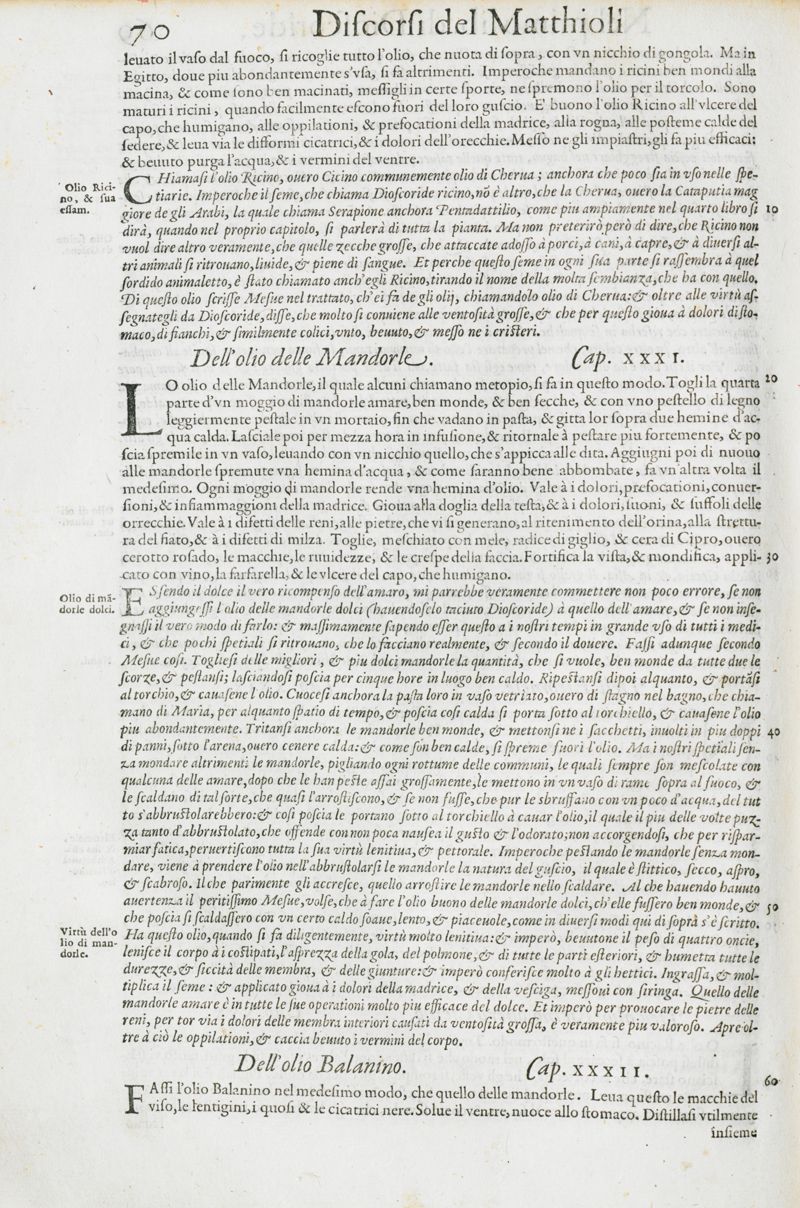 70 Diſcorſi del Matthioli
leuato il vaſo dal fuoco, ſi ricoglie tutto l'olio, che nuota di ſopra, con vn nicchio di gongola. Ma in
Egitto, doue piu abondantemente s'vſa, ſi fa altrimenti. Imperoche mandano i ricini ben mondi alla
macina, & come ſono ben macinati, meſſigli in certe ſporte, ne ſpremono l'olio per il torcolo. Sono
maturi i ricini, quando facilmente eſcono fuori del loro guſcio. E' buono l'olio Ricino all'vlcere del
capo, che humigano, alle oppilationi, & prefocationi della madrice, alla rogna, alle poſteme calde del
ſedere, & leua via le difformi cicatrici, & i dolori dell'orecchie. Meſſo ne gli impiaſtri, gli fa piu efficaci:
& beuuto purga l'acqua, & i vermini del ventre.
Olio Rici-
no, & ſua
eſſam.
CHiamaſi l'olio Ricino, ouero Cicino communemente olio di Cherua; anchora che poco ſia in vſo nelle ſpe-
tiarie. Imperoche il ſeme, che chiama Dioſcoride ricino, nō è altro, che la Cherua, ouero la Cataputia mag
giore de gli Arabi, la quale chiama Serapione anchora Pentadattilio, come piu ampiamente nel quarto libro ſi 10
dirà, quando nel proprio capitolo, ſi parlerà di tutta la pianta. Ma non preterirò però di dire, che Ricino non
vuol dire altro veramente, che quelle zecche groſſe, che attaccate adoſſo à porci, à cani, à capre, & à diuerſi al-
tri animali ſi ritrouano, liuide, & piene di ſangue. Et perche queſto ſeme in ogni ſua parte ſi raſſembra à quel
ſordido animaletto, è ſtato chiamato anch'egli Ricino, tirando il nome della molta ſembianza, che ha con quello.
Di queſto olio ſcriſſe Meſue nel trattato, ch'ei fa de gli olij, chiamandolo olio di Cherua: & oltre alle virtù aſ-
ſegnategli da Dioſcoride, diſſe, che molto ſi conuiene alle ventoſità groſſe, & che per queſto gioua à dolori di ſto-
maco, di fianchi, & ſimilmente colici, vnto, beuuto, & meſſo ne i criſteri.
Dell'olio delle Mandorle. Cap. XXXI.
LO olio delle Mandorle, il quale alcuni chiamano metopio, ſi fa in queſto modo. Togli la quarta 20
parte d'vn moggio di mandorle amare, ben monde, & ben ſecche, & con vno peſtello di legno
leggiermente peſtale in vn mortaio, fin che vadano in paſta, & gitta lor ſopra due hemine d'ac-
qua calda. Laſciale poi per mezza hora in infuſione, & ritornale à peſtare piu fortemente, & po
ſcia ſpremile in vn vaſo, leuando con vn nicchio quello, che s'appicca alle dita. Aggiugni poi di nuouo
alle mandorle ſpremute vna hemina d'acqua, & come ſaranno bene abbombate, fa vn'altra volta il
medeſimo. Ogni moggio di mandorle rende vna hemina d'olio. Vale à i dolori, prefocationi, conuer-
ſioni, & infiammaggioni della madrice. Gioua alla doglia della teſta, & à i dolori, ſuoni, & ſuffoli delle
orrecchie. Vale à i difetti delle reni, alle pietre, che vi ſi generano, al ritenimento dell'orina, alla ſtrettu-
ra del fiato, & à i difetti di milza. Toglie, meſchiato con mele, radice di giglio, & cera di Cipro, ouero
cerotto roſado, le macchie, le ruuidezze, & le creſpe della faccia. Fortifica la viſta, & mondifica, appli- 30
cato con vino, la farfarella, & le vlcere del capo, che humigano.
Olio di mā-
dorle dolci.
ESſendo il dolce il vero ricompenſo dell'amaro, mi parrebbe veramente commettere non poco errore, ſe non
aggiungeſſi l'olio delle mandorle dolci (hauendoſelo taciuto Dioſcoride) à quello dell'amare, & ſe non inſe-
gnaſſi il vero modo di farlo: & maſſimamente ſapendo eſſer queſto a i noſtri tempi in grande vſo di tutti i medi-
ci, & che pochi ſpetiali ſi ritrouano, che lo facciano realmente, & ſecondo il douere. Faſſi adunque ſecondo
Meſue coſi. Toglieſi delle migliori, & piu dolci mandorle la quantità, che ſi vuole, ben monde da tutte due le
ſcorze, & peſtanſi; laſciandoſi poſcia per cinque hore in luogo ben caldo. Ripeſtanſi dipoi alquanto, & portāſi
al torchio, & cauaſene l'olio. Cuoceſi anchora la paſta loro in vaſo vetriato, ouero di ſtagno nel bagno, che chia-
mano di Maria, per alquanto ſpatio di tempo, & poſcia coſi calda ſi porta ſotto al torchiello, & cauaſene l'olio
piu abondantemente. Tritanſi anchora le mandorle ben monde, & mettonſi ne i ſacchetti, inuolti in piu doppi 40
di panni, ſotto l'arena, ouero cenere calda: & come ſon ben calde, ſi ſpreme fuori l'olio. Ma i noſtri ſpetiali ſen-
za mondare altrimenti le mandorle, pigliando ogni rottume delle communi, le quali ſempre ſon meſcolate con
qualcuna delle amare, dopo che le han peſte aſſai groſſamente, le mettono in vn vaſo di rame ſopra al fuoco, &
le ſcaldano di tal ſorte, che quaſi l'arroſtiſcono, & ſe non fuſſe, che pur le sbruffano con vn poco d'acqua, del tut
to s'abbruſtolarebbero: & coſi poſcia le portano ſotto al torchiello à cauar l'olio, il quale il piu delle volte puz-
za tanto d'abbruſtolato, che offende con non poca nauſea il guſto & l'odorato; non accorgendoſi, che per riſpar-
miar fatica, peruertiſcono tutta la ſua virtù lenitiua, & pettorale. Imperoche peſtando le mandorle ſenza mon-
dare, viene à prendere l'olio nell'abbruſtolarſi le mandorle la natura del guſcio, il quale è ſtittico, ſecco, aſpro,
& ſcabroſo. Il che parimente gli accreſce, quello arroſtire le mandorle nello ſcaldare. Al che hauendo hauuto
auertenza il peritiſſimo Meſue, volſe, che à fare l'olio buono delle mandorle dolci, ch'elle fuſſero ben monde, & 50
che poſcia ſi ſcaldaſſero con vn certo caldo ſoaue, lento, & piaceuole, come in diuerſi modi qui di ſopra s'è ſcritto.
Virtù dell'o
lio di man-
dorle.
Ha queſto olio, quando ſi fa diligentemente, virtù molto lenitiua: & imperò, beuutone il peſo di quattro oncie,
leniſce il corpo à i coſtipati, l'aſprezza della gola, del polmone, & di tutte le parti eſteriori, & humetta tutte le
durezze, & ſiccità delle membra, & delle giunture: & imperò conferiſce molto à gli hettici. Ingraſſa, & mol-
tiplica il ſeme: & applicato gioua à i dolori della madrice, & della veſciga, meſſoui con ſiringa. Quello delle
mandorle amare è in tutte le ſue operationi molto piu efficace del dolce. Et imperò per prouocare le pietre delle
reni, per tor via i dolori delle membra interiori cauſati da ventoſità groſſa, è veramente piu valoroſo. Apre ol-
tre à ciò le oppilationi, & caccia beuuto i vermini del corpo.
Dell'olio Balanino. Cap. XXXII.
FAſſi l'olio Balanino nel medeſimo modo, che quello delle mandorle. Leua queſto le macchie del 60
viſo, le lentigini, i quoſi & le cicatrici nere. Solue il ventre, nuoce allo ſtomaco. Diſtillaſi vtilmente
inſieme